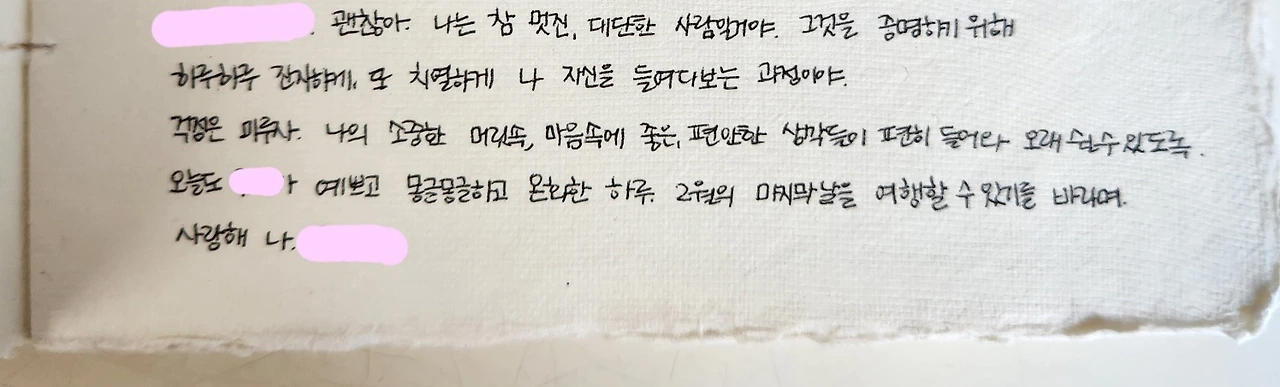 . 괜찮아. 나는 참 멋진, 대단한 사람일거야. 그것을 증명하기 위해
하루하루 잔잔하게, 또 치열하게 나 자신을 들여다보는 과정이야.
걱정은 미루자. 나의 소중한 머릿속, 마음속에 좋은, 편안한 생각들이 편히 들어와 오래 쉴 수 있도록.
오늘도 예쁘고 몽글몽글하고 온화한 하루. 2월의 마지막날을 여행할 수 있기를 바라며.
사랑해 나.